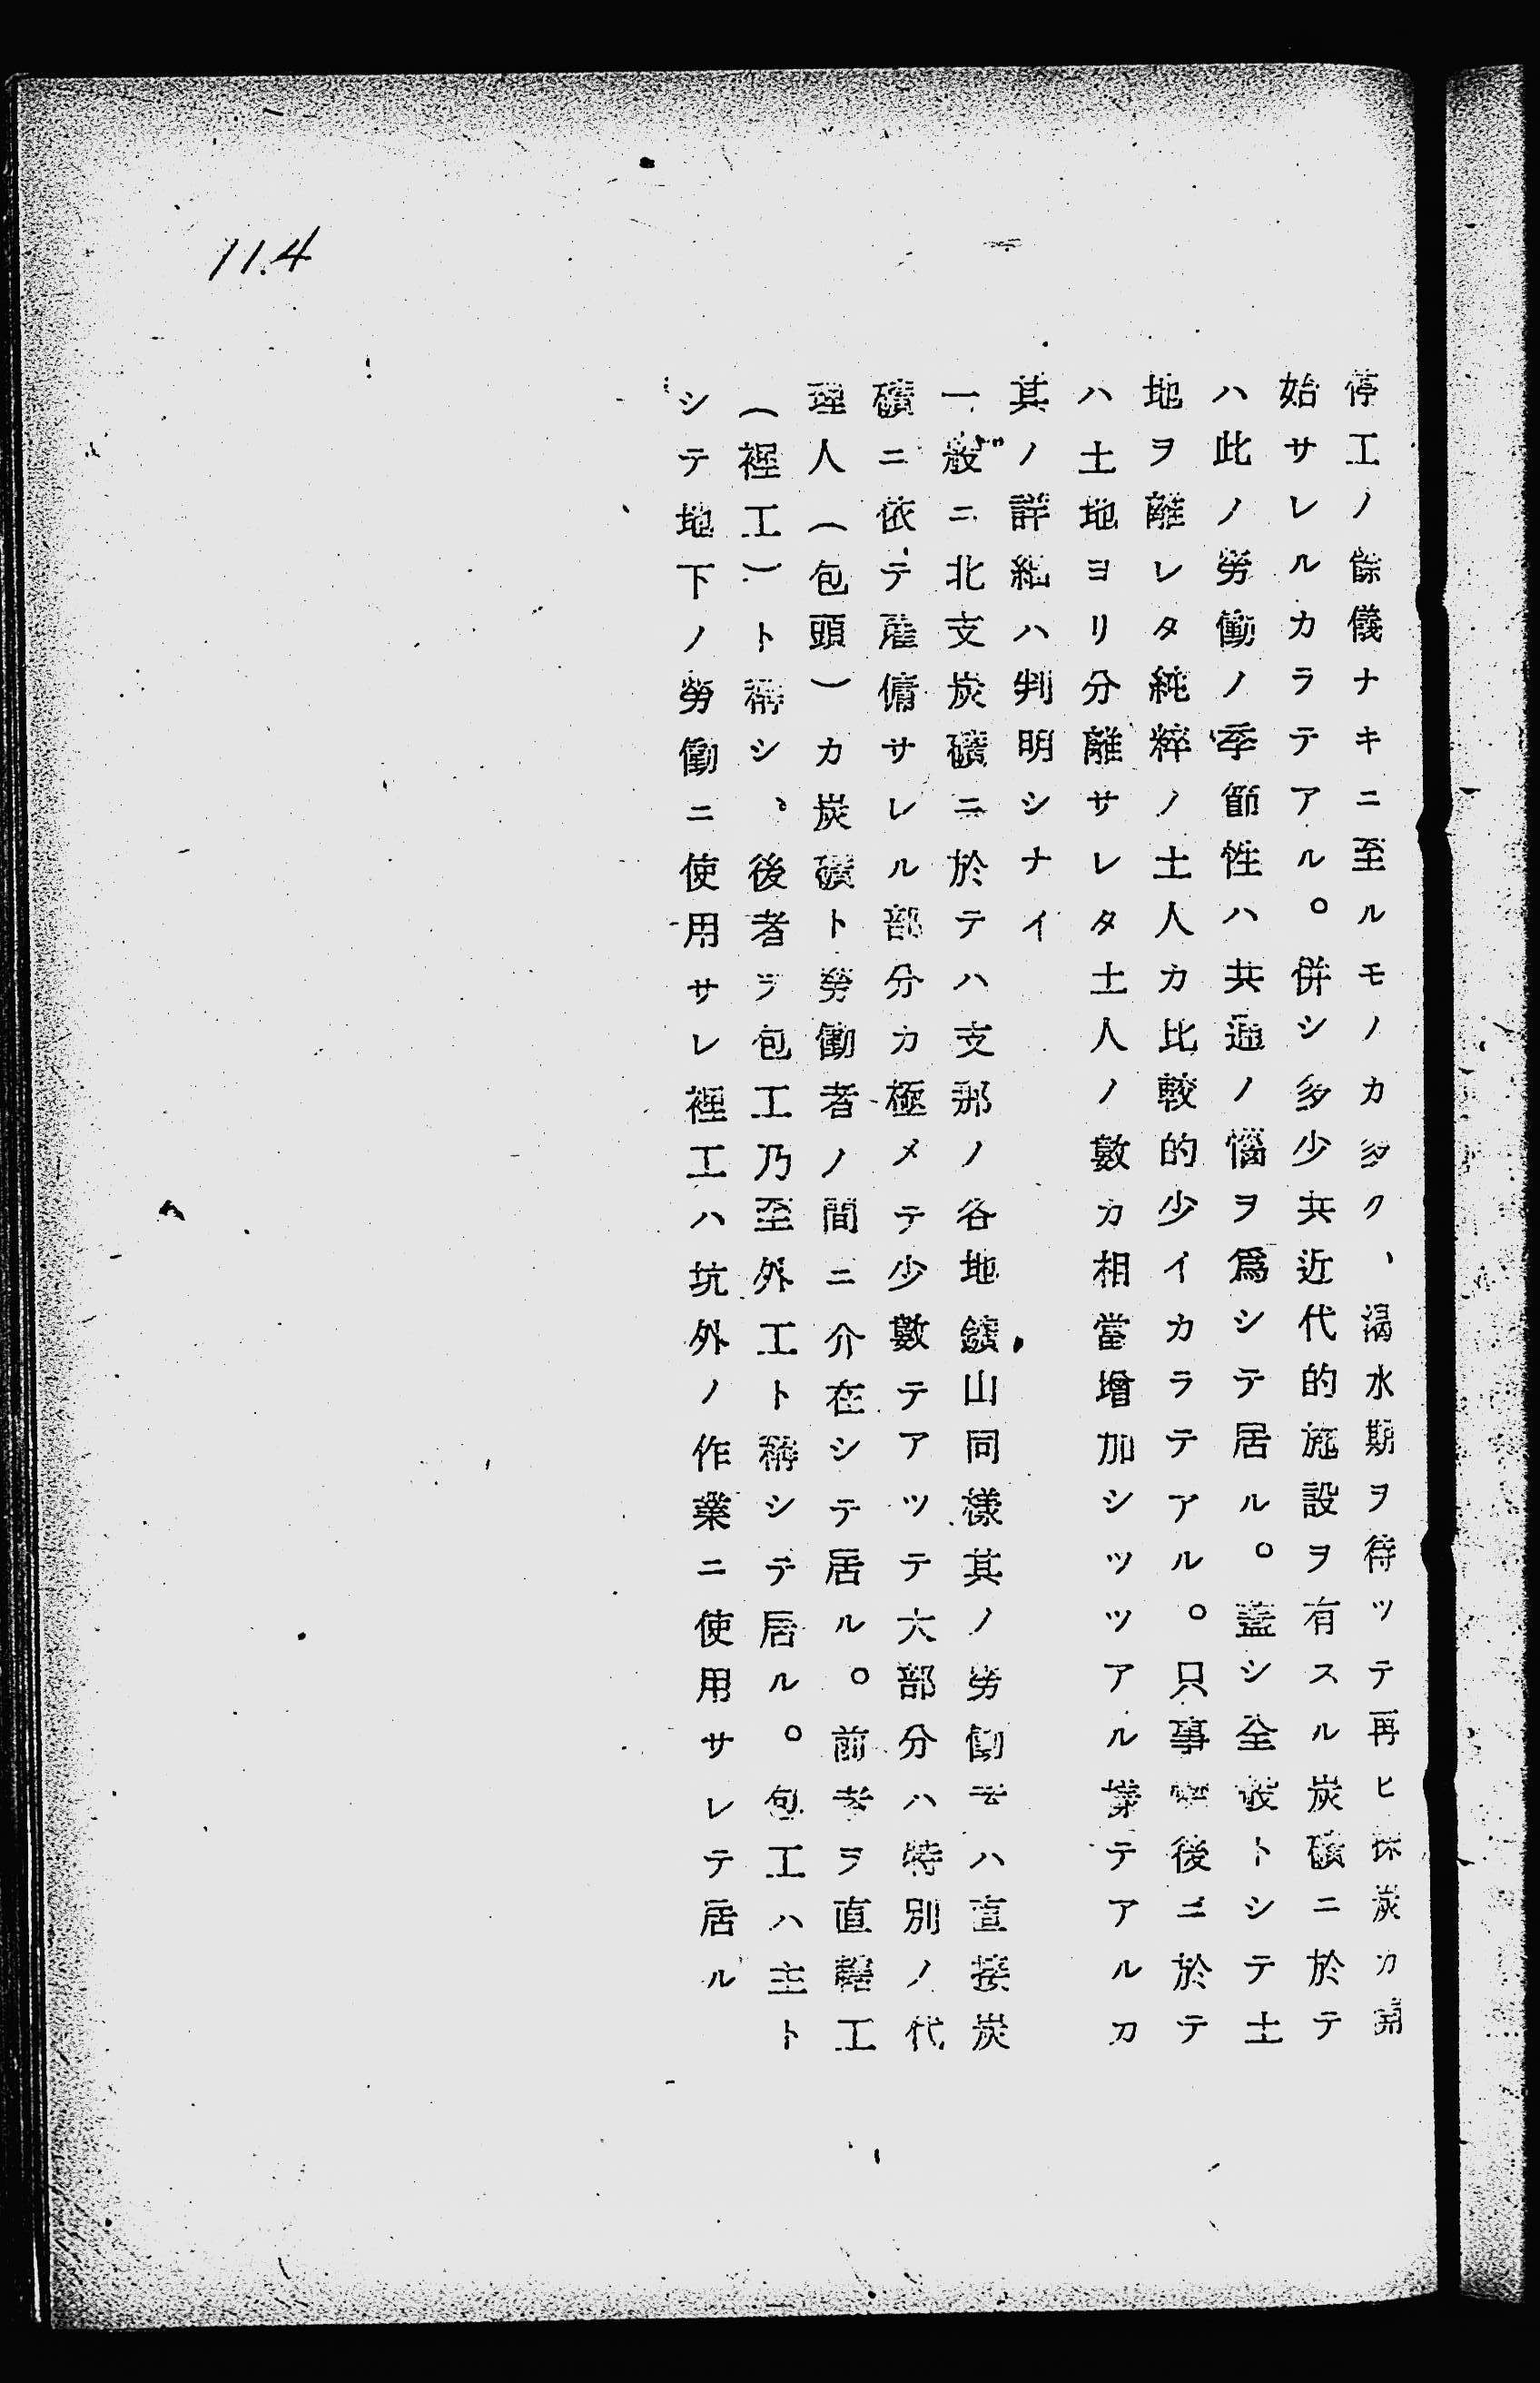 停工ノ餘儀ナキニ至ルモノカ多ク、渴水期ヲ待ツテ再ヒ採炭カ開
始サレルカラテアル。併シ多少共近代的施設ヲ有スル炭礦ニ於テ
ハ此ノ勞働ノ季節性ハ共通ノ惱ヲ爲シテ居ル。蓋シ全般トシテ土
地ヲ離レタ純粹ノ土人カ比較的少イカラテアル。只事變後ニ於テ
ハ土地ヨリ分離サレタ土人ノ數カ相當增加シツツアル樣テアルカ
其ノ詳細ハ判明シナイ
一般ニ北支炭礦ニ於テハ支那ノ各地鑛山同樣其ノ勞働者ハ直接炭
礦ニ依テ雇傭サレル部分カ極メテ少數テアツテ大部分ハ特別ノ代
理人(包頭)カ炭礦ト勞働者ノ間ニ介在シテ居ル。前者ヲ直轄工
(裡工)ト稱シ、後者ヲ包工乃至外工ト稱シテ居ル。包工ハ主ト
シテ地下ノ勞働ニ使用サレ裡工ハ坑外ノ作業ニ使用サレテ居ル
114